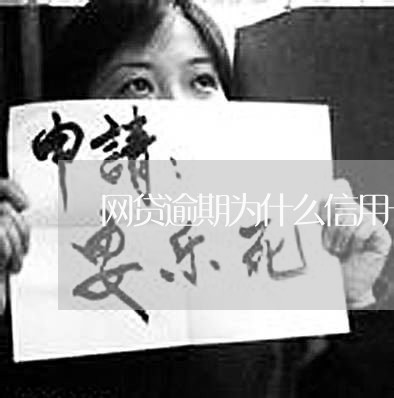 申請：
网贷逾期为什么信用
安乐死